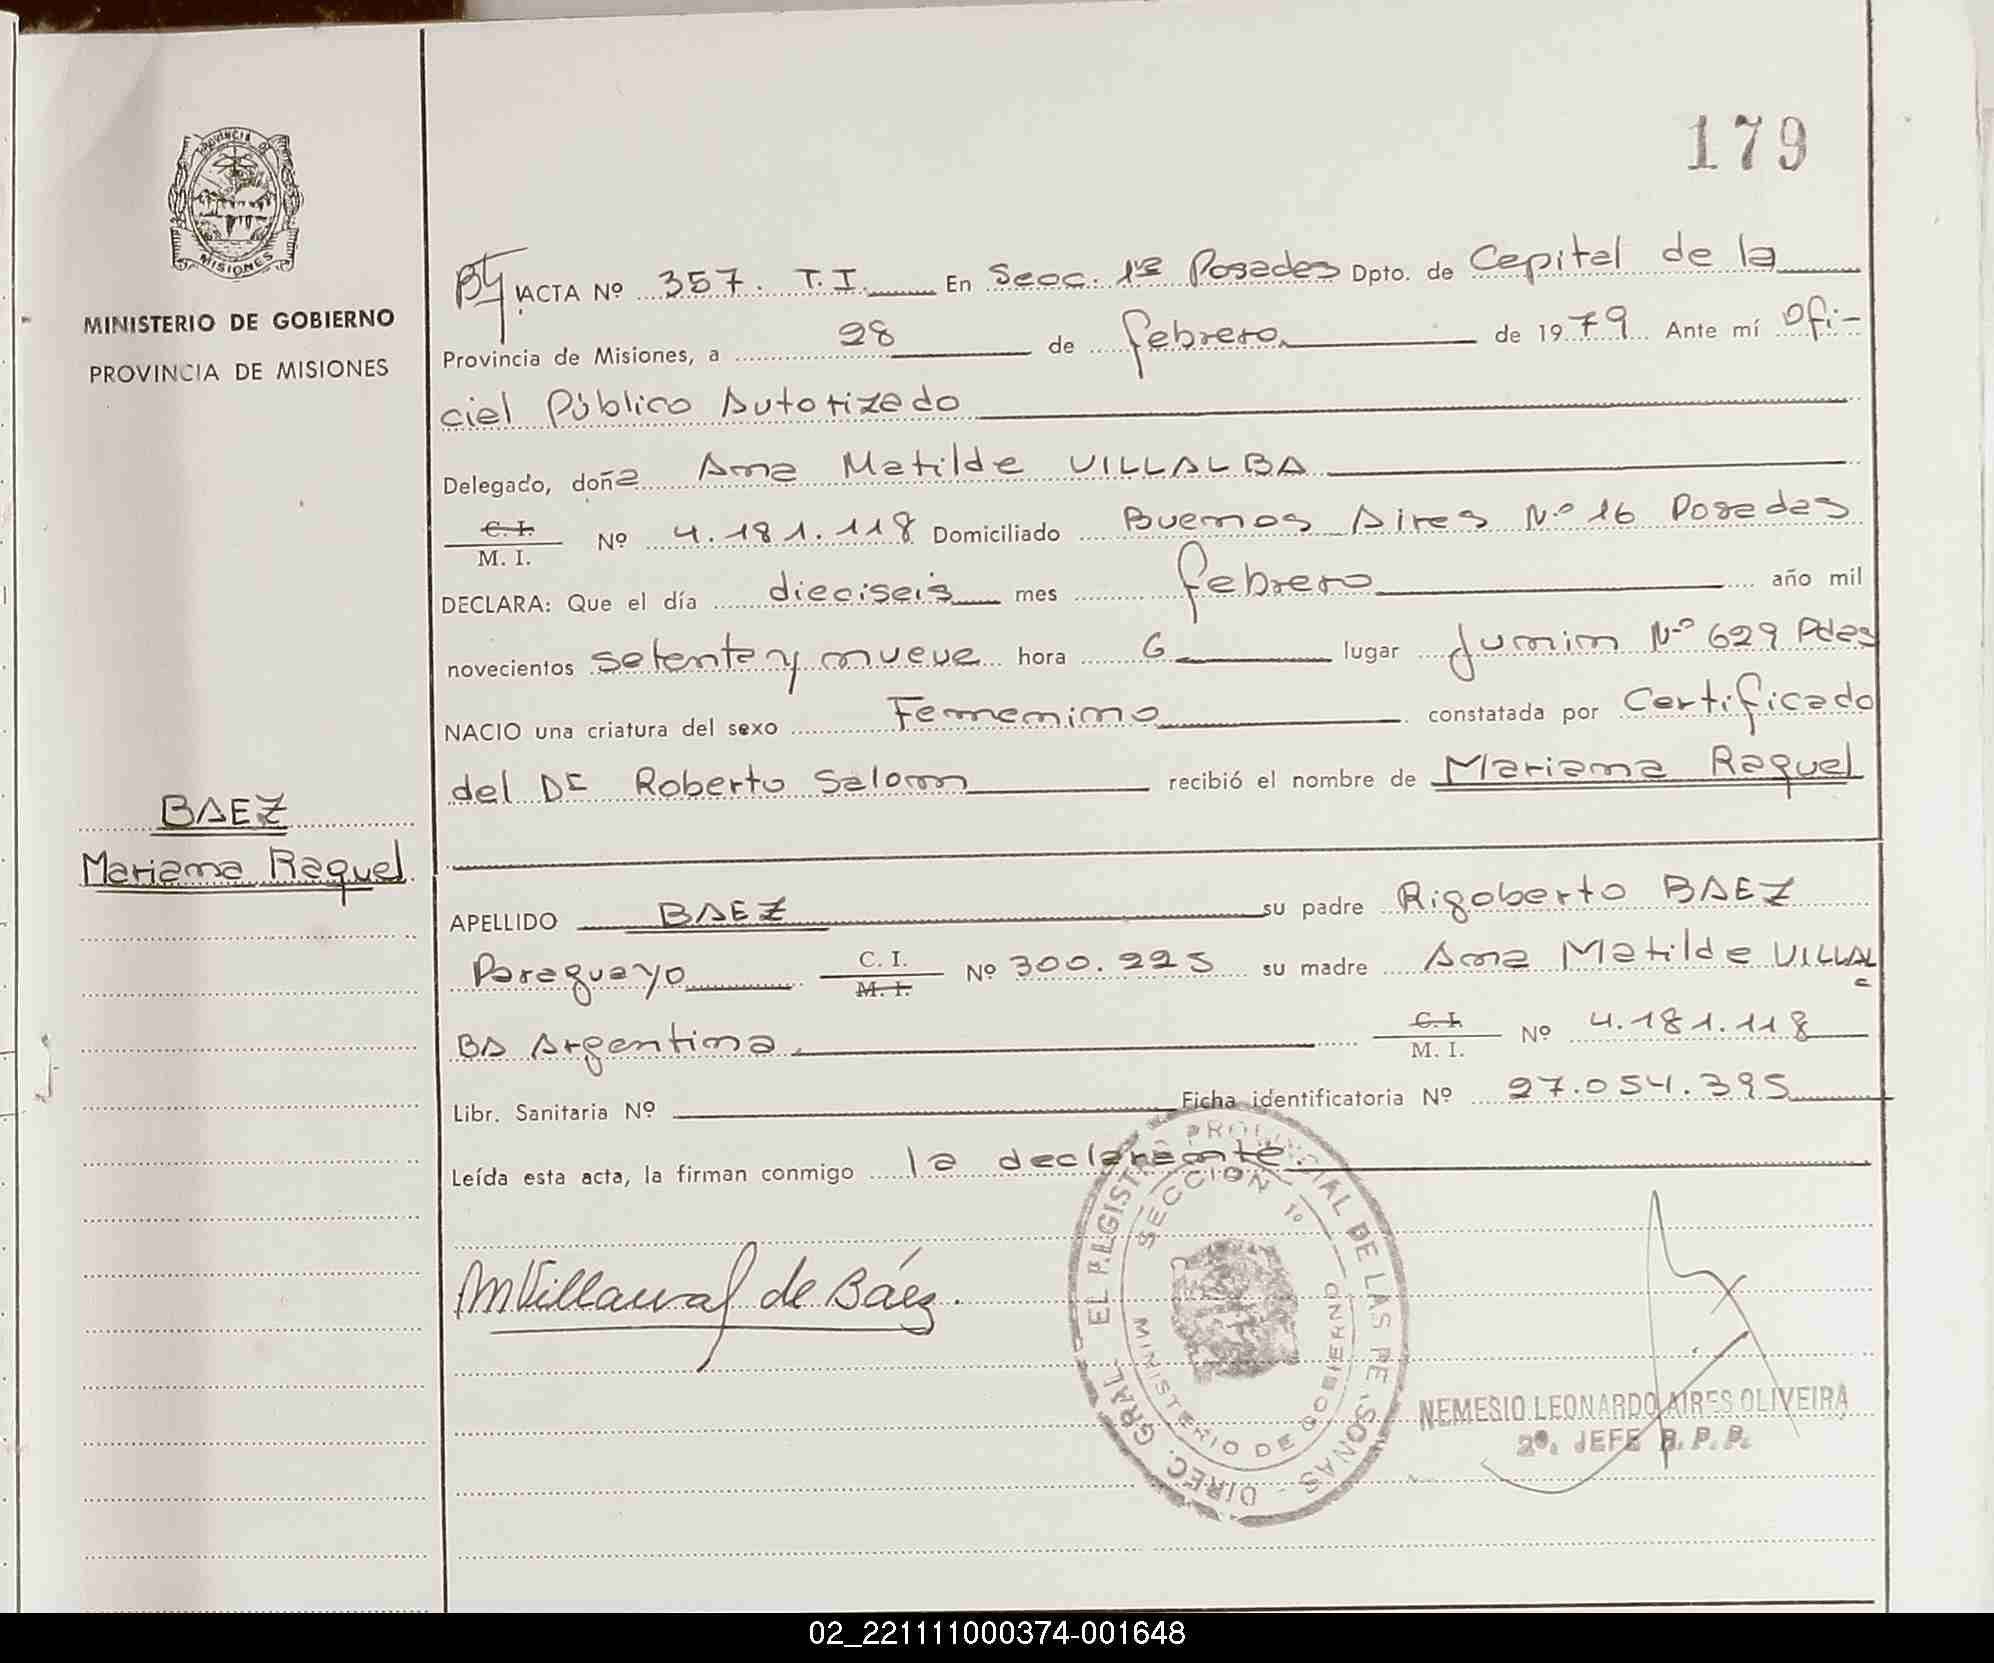 179
PROVINCIA DE
MISIONES
MINISTERIO DE GOBIERNO
PROVINCIA DE MISIONES
ACTA Nº 357. T.I. En Secc. 1ra Posadas Dpto. de Capital de la
Provincia de Misiones, a 28 de febrero de 1979 Ante mí Ofi-
cial Público Autorizado
Delegado, doña Ana Matilde VILLALBA
C. I.
M. I. Nº 4.181.118 Domiciliado Buenos Aires Nº 16 Posadas
DECLARA: Que el día dieciseis mes febrero año mil
novecientos setenta y nueve hora 6 lugar Junin Nº 629 Pdas
NACIO una criatura del sexo Femenino constatada por Certificado
del DR Roberto Salom recibió el nombre de Mariana Raquel
BAEZ
Mariana Raquel
APELLIDO BAEZ su padre Rigoberto BAEZ
Paraguayo C. I. M. I. Nº 300.225 su madre Ana Matilde VILLAL
BA Argentina C. I. M. I. Nº 4.181.118
Libr. Sanitaria Nº Ficha identificatoria Nº 27.054.395
Leída esta acta, la firman conmigo la declarante.
de Báez.
DIREC. GRAL. EL REGIST PROVINCIAL DE LAS PERSONAS
SECCION 1º
MINISTERIO DE GOBIERNO
NEMESIO LEONARDO AIRES OLIVEIRA
2º. JEFE R. P. P.
02_221111000374-001648